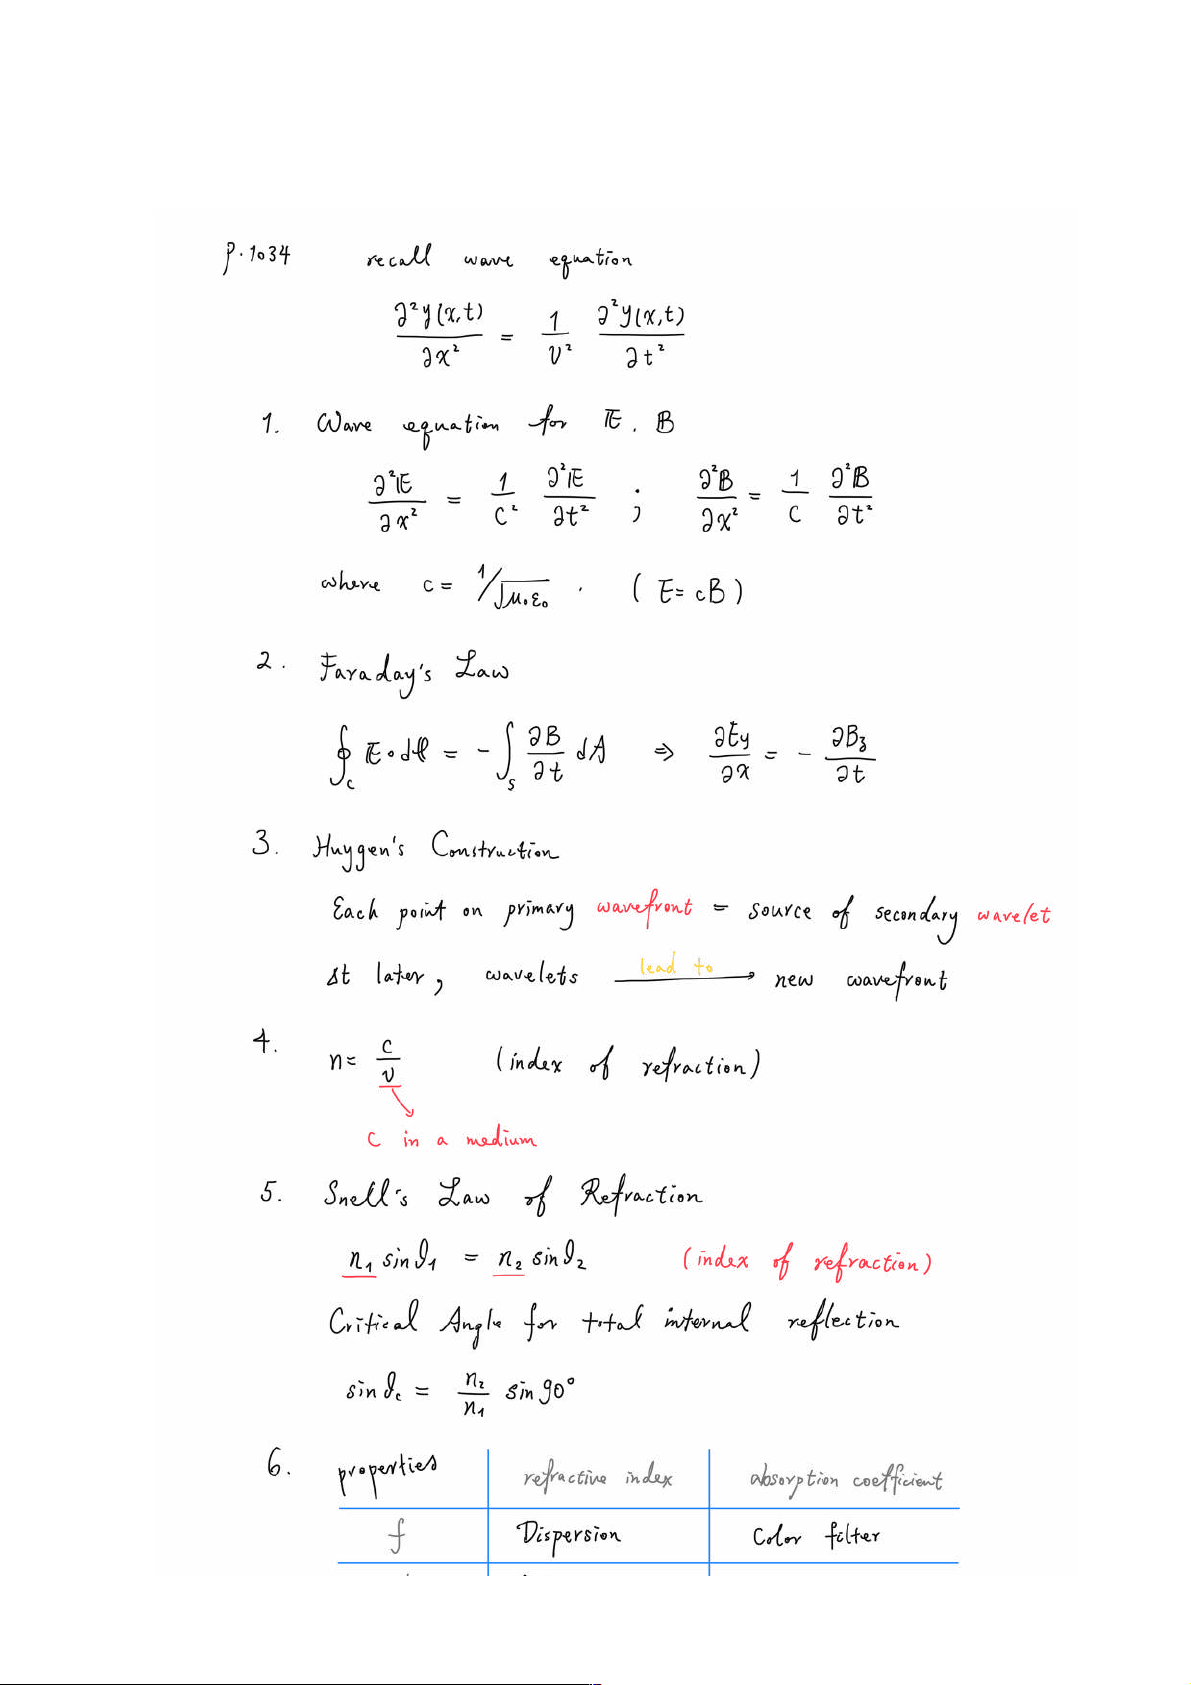 p.1034 recall wave equation
∂²y(x,t)/∂x² = 1/v² ∂²y(x,t)/∂t²
1. Wave equation for 𝔼, 𝔹
∂²𝔼/∂x² = 1/c² ∂²𝔼/∂t² ; ∂²𝔹/∂x² = 1/c ∂²𝔹/∂t²
where c = 1/√μ₀ε₀ . ( E = cB )
2. Faraday's Law
∮c 𝔼 • dℓ = - ∫s ∂B/∂t dA ⇒ ∂Ey/∂x = - ∂Bz/∂t
3. Huygen's Construction
Each point on primary wavefront = source of secondary wavelet
Δt later, wavelets lead to → new wavefront
4. n = c/v (index of refraction)
c in a medium
5. Snell's Law of Refraction
n₁ sinθ₁ = n₂ sinθ₂ (index of refraction)
Critical Angle for total internal reflection
sin θc = n₂/n₁ sin 90°
6. properties refractive index absorption coefficient
f Dispersion Color filter